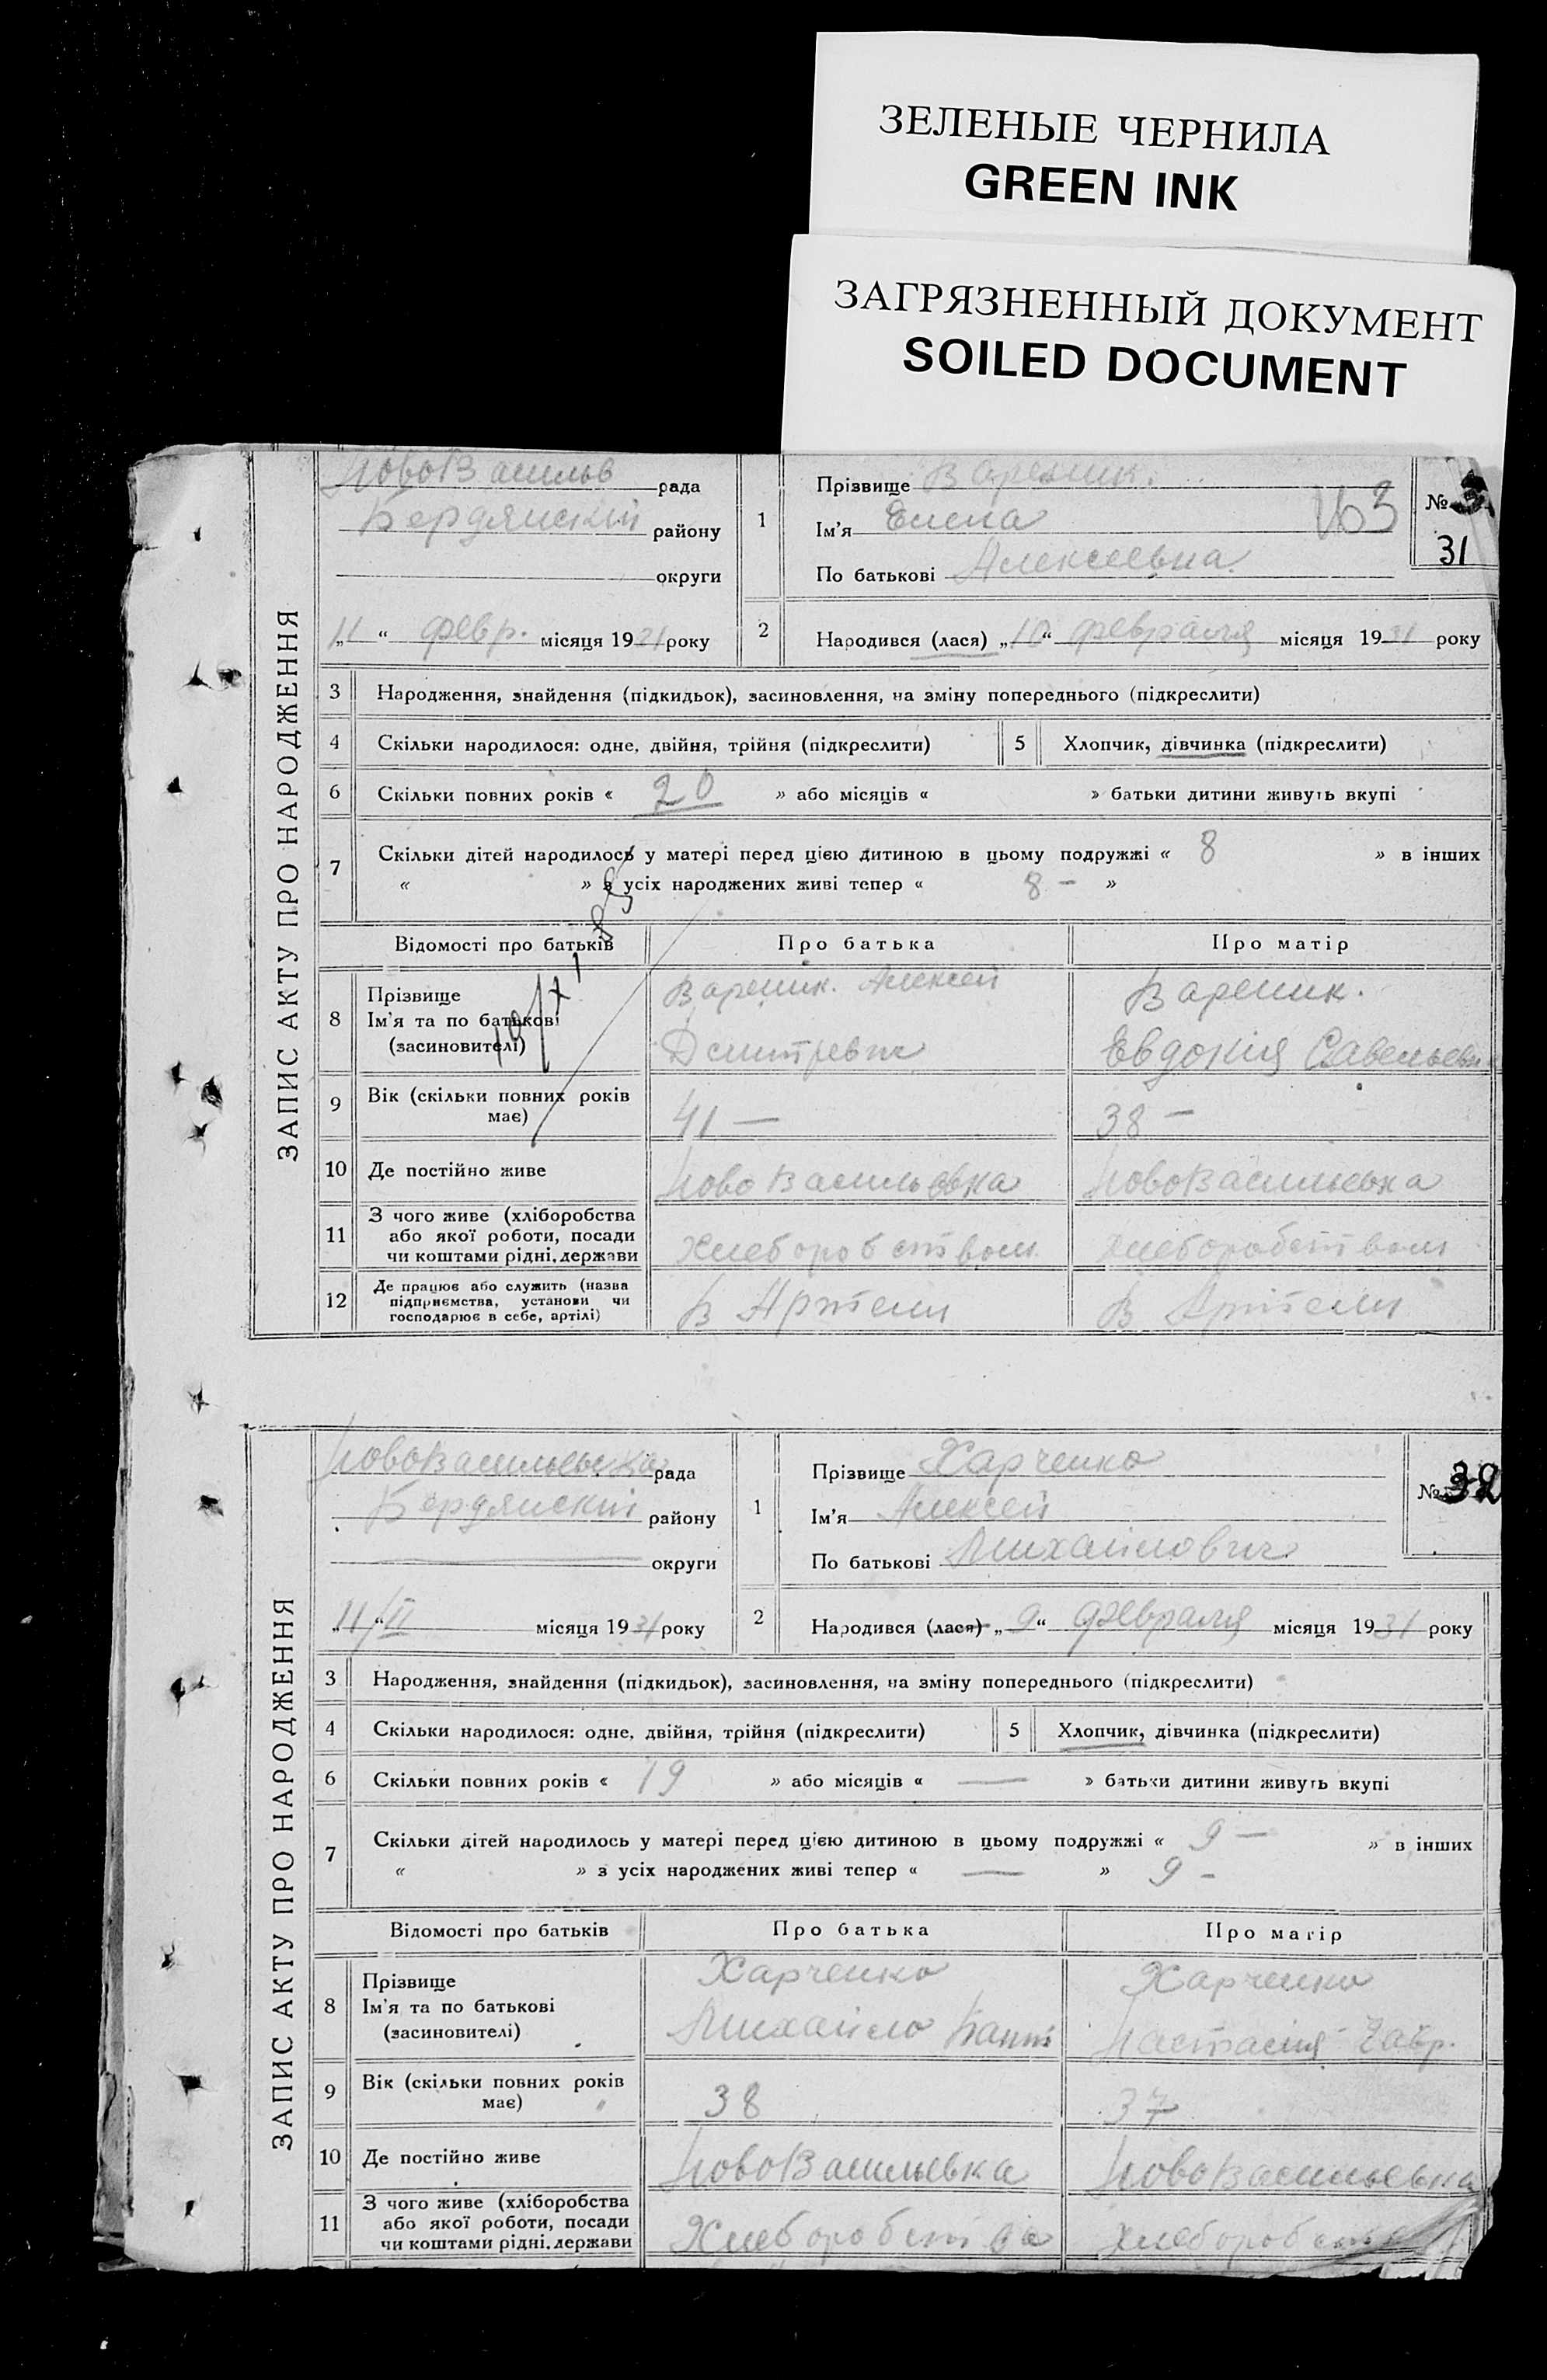 ЗЕЛЕНЫЕ ЧЕРНИЛА
GREEN INK
ЗАГРЯЗНЕННЫЙ ДОКУМЕНТ
SOILED DOCUMENT
ЗАПИС АКТУ ПРО НАРОДЖЕННЯ
НовоВасильв рада
Бердянский району
округи
„11“ февр. місяця 1931 року
1 Прізвище Вареник.
Ім'я Елена
По батькові Алексеевна.
№ 31
2 Народився (лася) „10“ февраля місяця 1931 року
3 Народження, знайдення (підкидьок), засиновлення, на зміну попереднього (підкреслити)
4 Скільки народилося: одне, двійня, трійня (підкреслити) 5 Хлопчик, дівчинка (підкреслити)
6 Скільки повних років « 20 » або місяців « » батьки дитини живуть вкупі
7 Скільки дітей народилось у матері перед цією дитиною в цьому подружжі « 8 » в інших
« » з усіх народжених живі тепер « 8 – »
Відомості про батьків Про батька Про матір
8 Прізвище
Ім'я та по батькові
(засиновителі)
Вареник. Алексей
Дмитревич
Вареник.
Евдокия Савельевн
9 Вік (скільки повних років
має)
41 — 38 —
10 Де постійно живе НовоВасильевка НовоВасильевка
11 З чого живе (хліборобства
або якої роботи, посади
чи коштами рідні, держави
Хлеборобством Хлеборобством
12 Де працює або служить (назва
підприємства, установи чи
господарює в себе, артілі)
В Артели В Артели
ЗАПИС АКТУ ПРО НАРОДЖЕННЯ
НовоВасильевка рада
Бердянский району
округи
„11/II місяця 1931 року
1 Прізвище Харченко
Ім'я Алексей
По батькові Михайлович
№ 32
2 Народився (лася) „9“ февраля місяця 1931 року
3 Народження, знайдення (підкидьок), засиновлення, на зміну попереднього (підкреслити)
4 Скільки народилося: одне, двійня, трійня (підкреслити) 5 Хлопчик, дівчинка (підкреслити)
6 Скільки повних років « 19 » або місяців « — » батьки дитини живуть вкупі
7 Скільки дітей народилось у матері перед цією дитиною в цьому подружжі « 9 — » в інших
« » з усіх народжених живі тепер « — » 9 -
Відомості про батьків Про батька Про матір
8 Прізвище
Ім'я та по батькові
(засиновителі)
Харченко
Михайло
Харченко
Настасия Гавр.
9 Вік (скільки повних років
має)
38 37
10 Де постійно живе НовоВасильевка НовоВасильевка
11 З чого живе (хліборобства
або якої роботи, посади
чи коштами рідні, держави
Хлеборобства